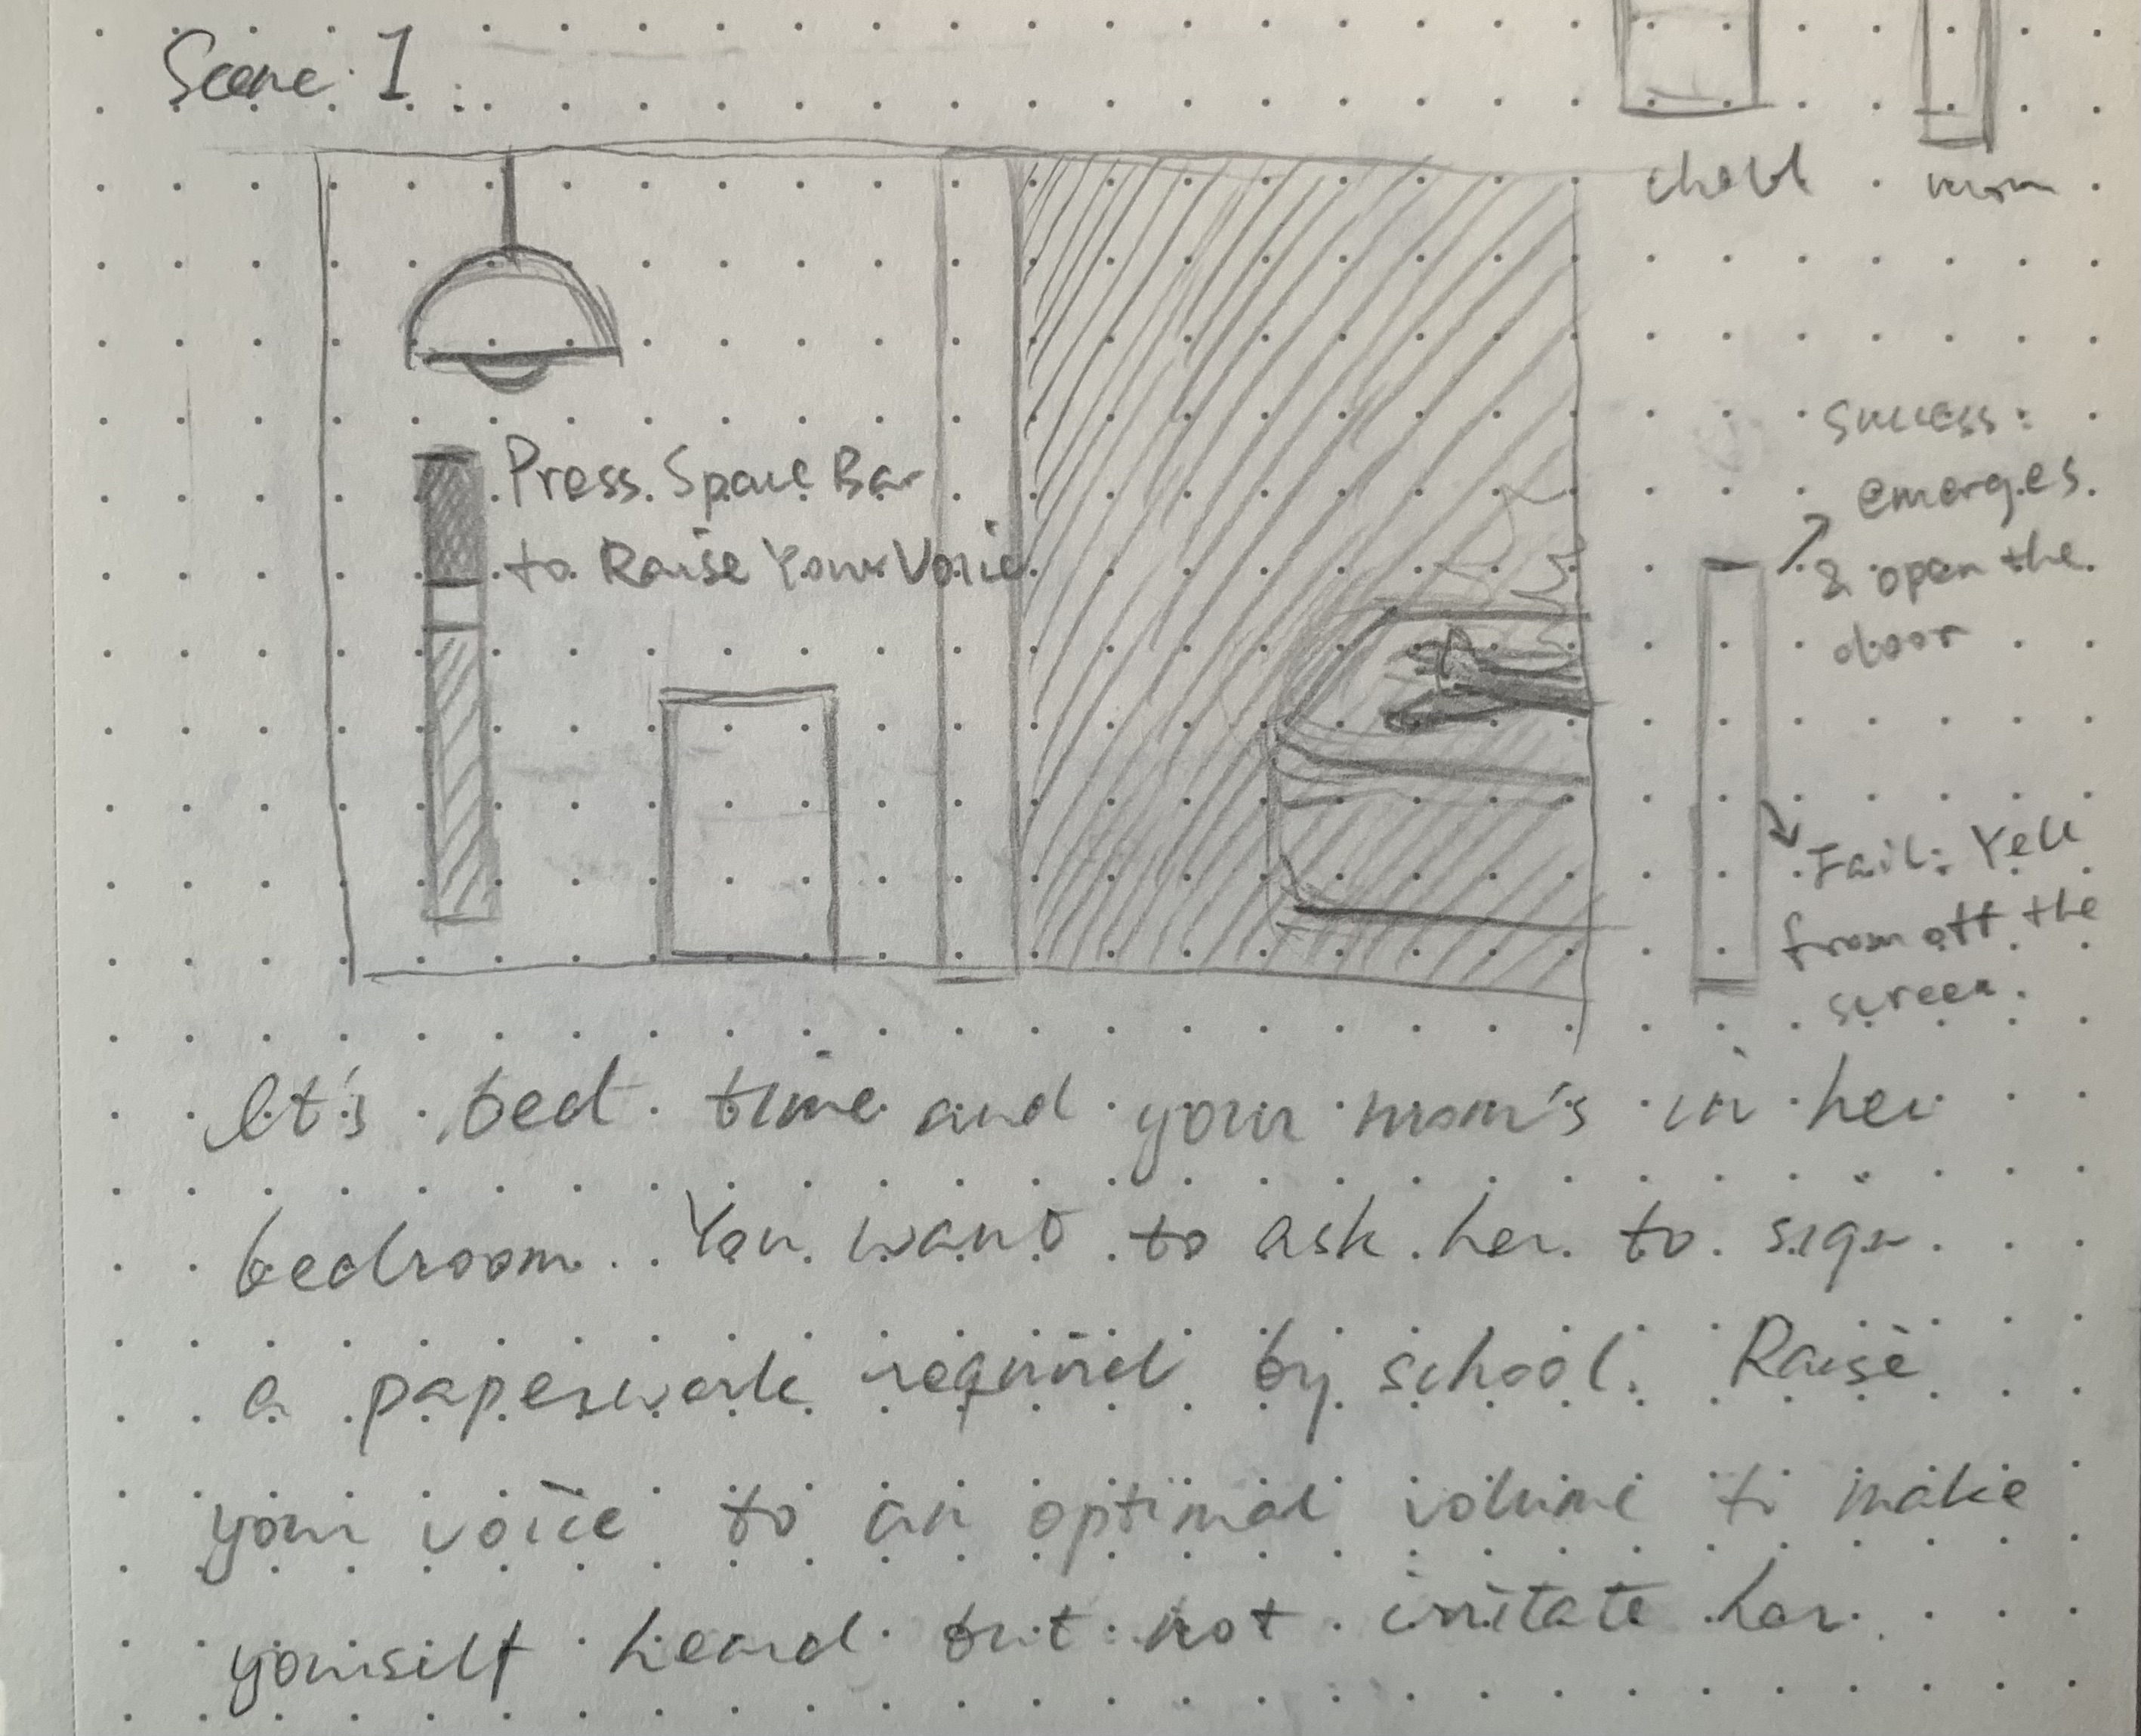 Scene 1:
child
mom
Press Space Bar
to Raise Your Voice
Success:
emerges
& open the
door
Fail: Yell
from off the
screen.
It's bed time and your mom's in her
bedroom. You want to ask her to sign
a paperwork required by school. Raise
your voice to an optimal volume to make
yourself heard but not irritate her.